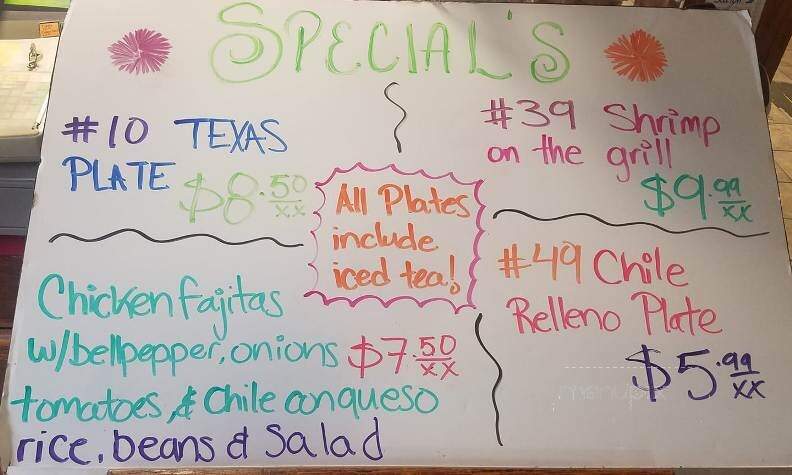 SPECIAL'S
#10 TEXAS
PLATE $8.50/xx
#39 Shrimp
on the grill
$9.99/xx
All Plates
include
iced tea!
Chicken fajitas
w/bellpepper, onions $7.50/xx
tomatoes, & Chile conqueso
rice, beans & Salad
#49 Chile
Relleno Plate
$5.99/xx